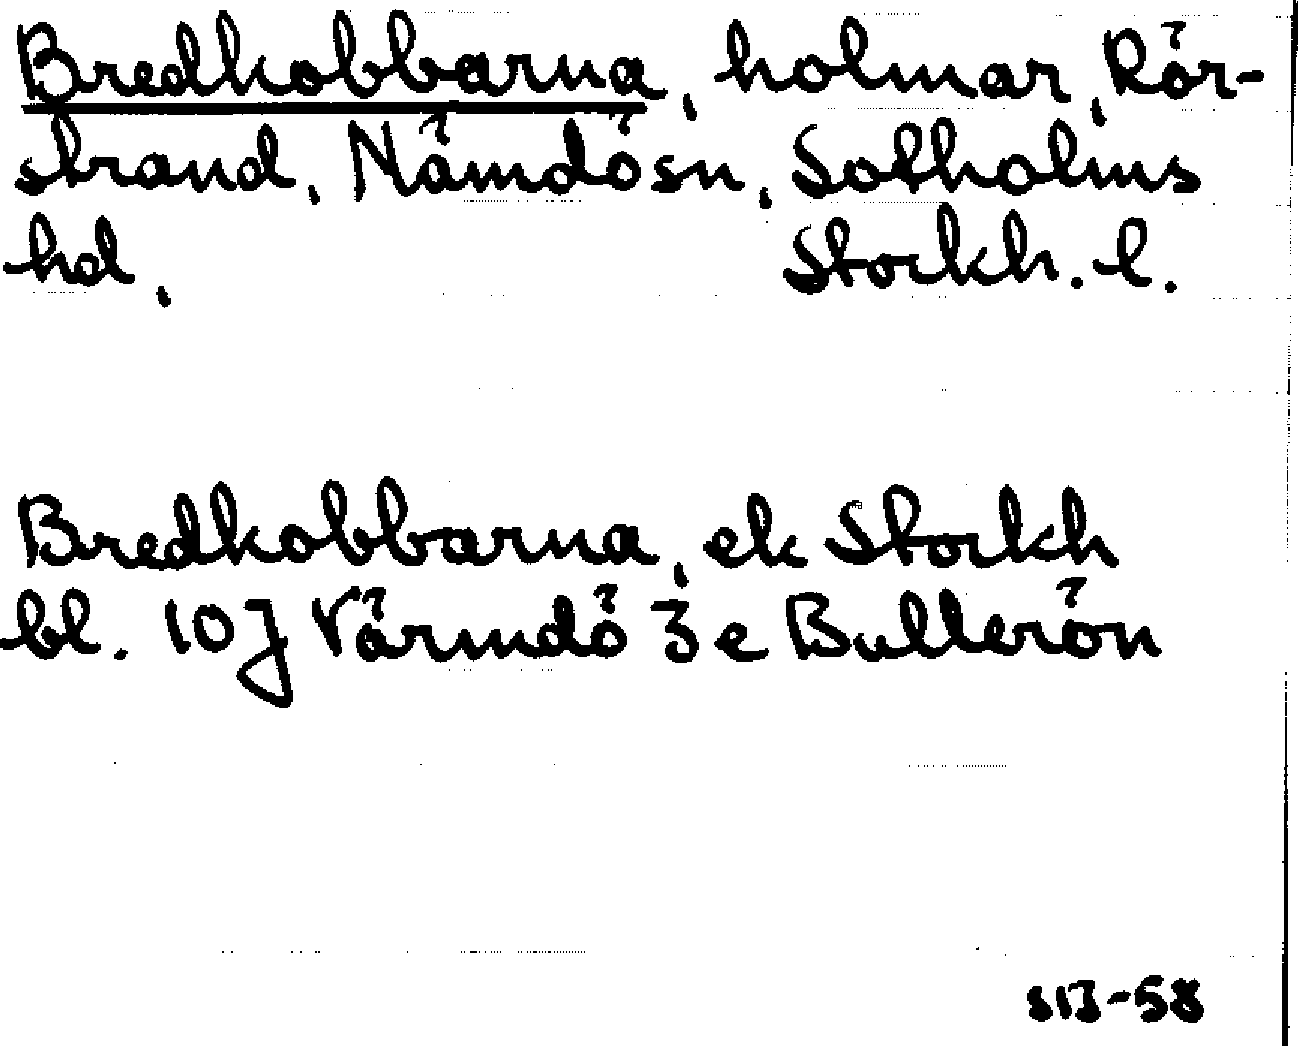 Bredkobbarna, holmar, Rör-
strand, Nämdösn, Sotholms
hd, Stockh. l.
Bredkobbarna, ek Stockh
bl. 10J Värmdö 3e Bullerön